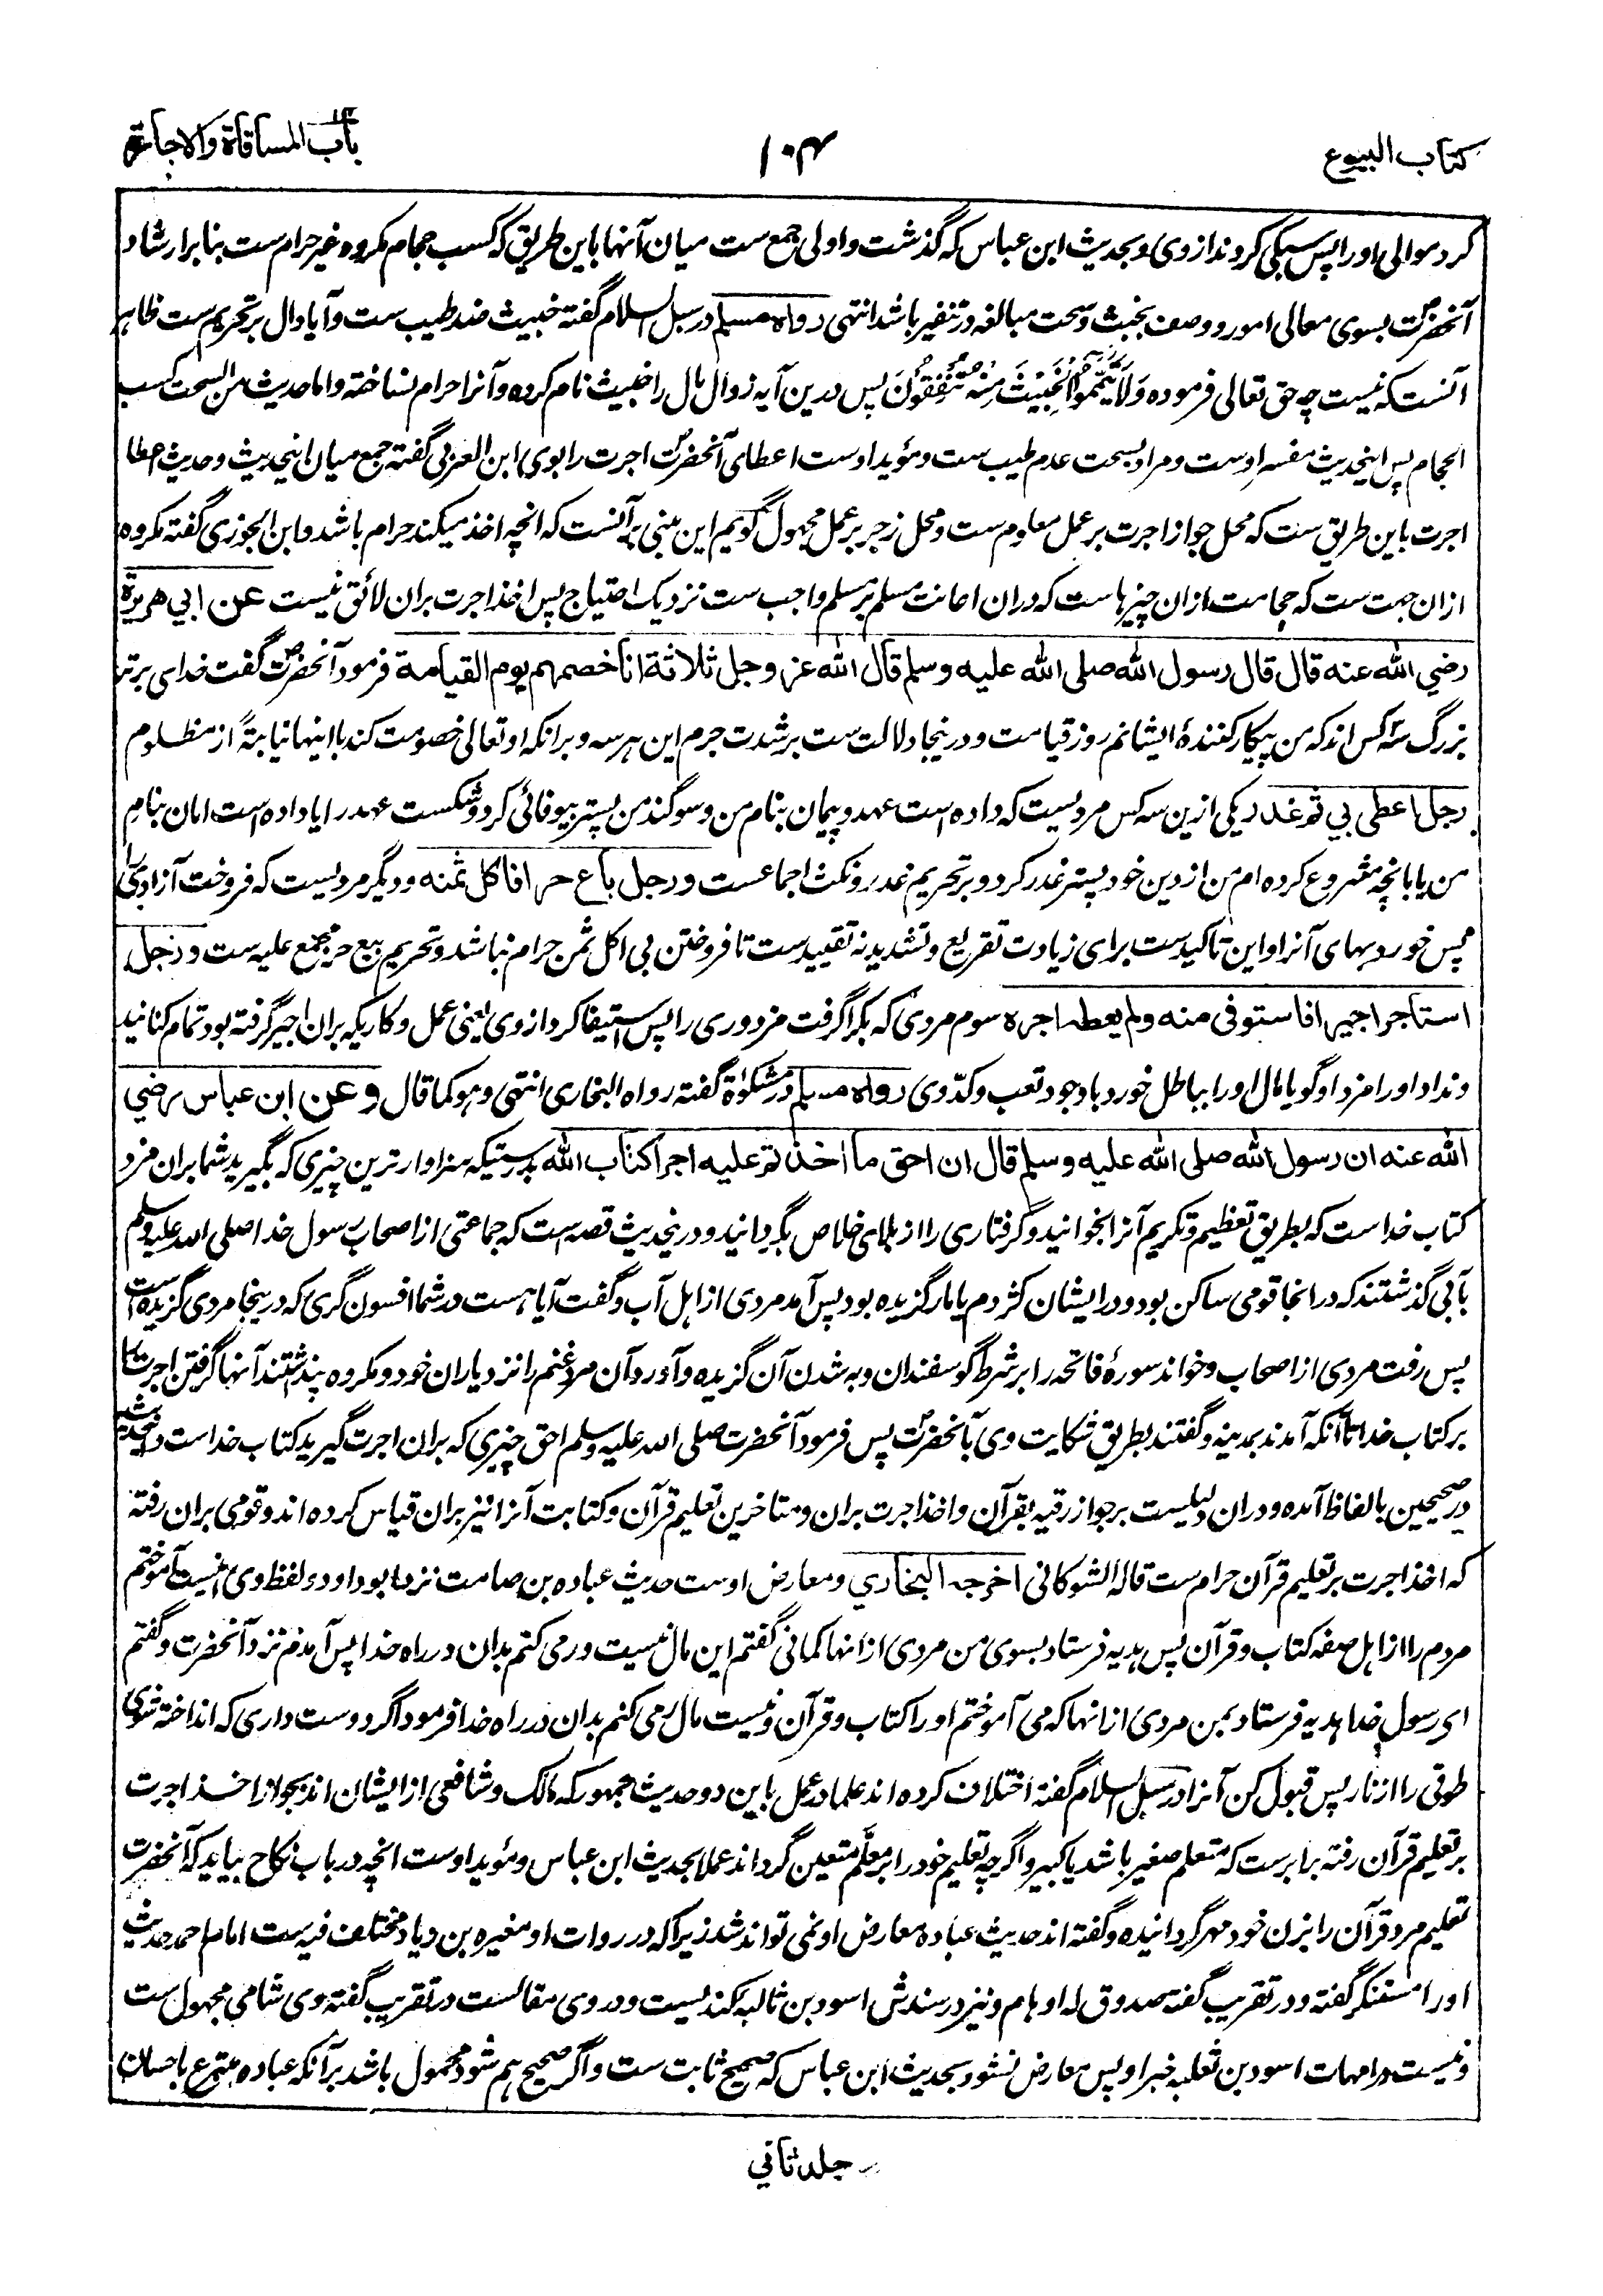 كتاب البيوع
۱۰۴
باب المساقاة والاجارة
كرد موالى او را پس سبكى كردند از وى و بحديث ابن عباس كه گذشت و اولى جمع ست ميان آنها باين طريق كه كسب حجام مكروه غير حرام ست بنا بر ارشاد
آنحضرت بسوى معالى امور و وصف بخبث و سحت مبالغه در تنفير باشد انتهى رواه مسلم در سبل السلام گفته خبيث ضد طيب ست و آيا دال بر تحريم ست ظاهر
آنست كه نيست چه حق تعالى فرموده وَلَا تَيَمَّمُوا الْخَبِيثَ مِنْهُ تُنْفِقُونَ پس درين آيه زوال مال را خبيث نام كرده و آنرا حرام نساخته و اما حديث من السحت كسب
الحجام پس اينحديث مفسر اوست و مراد بسحت عدم طيب ست و مؤيد اوست اعطاى آنحضرت اجرت را بوى ابن العربى گفته جمع ميان اينحديث و حديث اعطا
اجرت باين طريق ست كه محل جواز اجرت بر عمل معلوم ست و محل زجر بر عمل مجهول گويم اين مبنى بر آنست كه انچه اخذ ميكند حرام باشد و ابن الجوزى گفته مكروه
ازان جهت ست كه حجامت ازان چيزهاست كه دران اعانت مسلم بر مسلم واجب ست نزديك احتياج پس اخذ اجرت بران لائق نيست عن ابي هريرة
رضي الله عنه قال قال رسول الله صلى الله عليه وسلم قال الله عز وجل ثلاثة انا خصمهم يوم القيامة فرمود آنحضرت گفت خداى برتر
بزرگ سه كس اند كه من پيكار كنندهٔ ايشانم روز قيامت و درينجا دلالت ست بر شدت جرم اين هر سه و برانكه او تعالى خصومت كند با اينها نيابةً از مظلوم
رجل اعطى بي ثم غدر يكى ازين سه كس مرديست كه داده است عهد و پيمان بنام من و سوگند من پستر بيوفائى كرد و شكست عهد را يا داده است امان بنام
من يا بانچه مشروع كرده ام من از دين خود پستر غدر كرد و بر تحريم غدر و نكث اجماعست و رجل باع حرا فاكل ثمنه و ديگر مرديست كه فروخت آزادى را
پس خورد بهاى آنرا و اين تاكيدست براى زيادت تقريع و تشديد نه تقييد ست تا فروختن بى اكل ثمن حرام نباشد و تحريم بيع حر مجمع عليه ست و رجل
استاجر اجيرا فاستوفى منه ولم يعطه اجره سوم مردى كه بكرا گرفت مزدورى را پس استيفا كرد از وى يعنى عمل و كاريكه بران اجير گرفته بود تمام كنانيد
و نداد او را مزد او گويا مال او را بباطل خورد با وجود تعب و كدّ وى رواه مسلم در مشكوٰة گفته رواه البخارى انتهى و هو كما قال و عن ابن عباس رضي
الله عنه ان رسول الله صلى الله عليه وسلم قال ان احق ما اخذتم عليه اجرا كتاب الله بدرستيكه سزاوارترين چيزى كه بگيريد شما بران مزد
كتاب خداست كه بطريق تعظيم و تكريم آنرا بخوانيد و گرفتارى را از بلاى خلاص بگردانيد و درينحديث قصه است كه جماعتى از اصحاب رسول خدا صلى الله عليه وسلم
بآبى گذشتند كه در انجا قومى ساكن بود و در ايشان كژدم يا مار گزيده بود پس آمد مردى از اهل آب و گفت آيا هست در شما افسون گرى كه درينجا مردى گزيده است
پس رفت مردى از اصحاب و خواند سورهٔ فاتحه را بر شرط گوسفندان و به شدن آن گزيده و آورد آن مرد غنم را نزد ياران خود و مكروه پنداشتند آنها گرفتن اجرت را
بر كتاب خدا تا آنكه آمدند بمدينه و گفتند بطريق شكايت وى بآنحضرت پس فرمود آنحضرت صلى الله عليه وسلم احق چيزى كه بران اجرت گيريد كتاب خداست و اينحديث
در صحيحين بالفاظ آمده و دران دليلست بر جواز رقيه بقرآن و اخذ اجرت بران و متاخرين تعليم قرآن و كتابت آنرا نيز بران قياس كرده اند و قومى بران رفته
كه اخذ اجرت بر تعليم قرآن حرام ست قاله الشوكانى اخرجه البخاري و معارض اوست حديث عباده بن صامت نزد ابو داود و لفظ وى اينست آموختم
مردم را از اهل صفه كتاب و قرآن پس هديه فرستاد بسوى من مردى از انها كمانى گفتم اين مال نيست و رمى كنم بدان در راه خدا پس آمدم نزد آنحضرت و گفتم
اى رسول خدا هديه فرستاد بمن مردى ازانها كه مى آموختم او را كتاب و قرآن و نيست مال رمى كنم بدان در راه خدا فرمود اگر دوست دارى كه انداخته شوى
طوقى را از نار پس قبول كن آنرا در سبل السلام گفته اختلاف كرده اند علما در عمل باين دو حديث جمهور كه مالك و شافعى از ايشان اند بجواز اخذ اجرت
بر تعليم قرآن رفته برابرست كه متعلم صغير باشد يا كبير و اگرچه تعليم خود را بر معلّم متعين گرداند عملا بحديث ابن عباس و مؤيد اوست انچه در باب نكاح بيايد كه آنحضرت
تعليم مرد قرآن را بزن خود مهر گردانيده و گفته اند حديث عباده معارض او نمى تواند شد زيراكه در روات او مغيره بن دياد مختلف فيه ست امام احمد حديث
او را مستنكر گفته و در تقريب گفته صدوق له اوهام و نيز در سندش اسود بن ثالبه كنديست و در وى مقالست در تقريب گفته وى شامى مجهول ست
و نيست در امهات اسود بن ثعلبه خبر او پس معارض نشود بحديث ابن عباس كه صحيح ثابت ست و اگر صحيح هم شود محمول باشد بر آنكه عباده متبرع باحسان
جلد ثاني